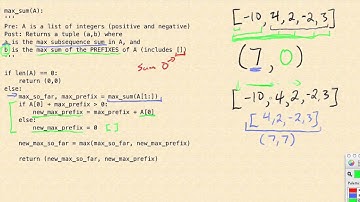 max_sum(A):
'''
Pre: A is a list of integers (positive and negative)
Post: Returns a tuple (a,b) where
a is the max subsequence sum in A, and
b is the max sum of the PREFIXES of A (includes [])
'''
sum 0
if len(A) == 0:
return (0,0)
else:
max_so_far, max_prefix = max_sum(A[1:])
if A[0] + max_prefix > 0:
new_max_prefix = max_prefix + A[0]
else:
new_max_prefix = 0 [ ]
new_max_so_far = max(max_so_far, new_max_prefix)
return (new_max_so_far, new_max_prefix)
[-10, 4, 2, -2, 3]
(7, 0)
[-10, 4, 2, -2, 3]
[4, 2, -2, 3]
(7, 7)